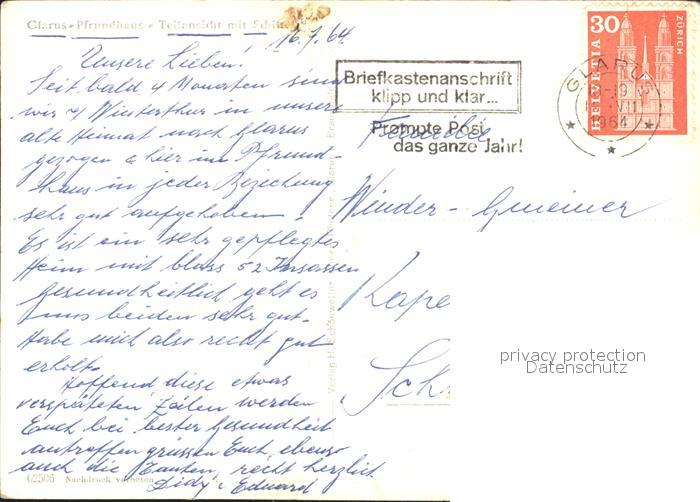 Glarus-Pfrundhaus - Teilansicht mit Schil
16.7.64.
Unsere Lieben!
Seit bald 4 Monaten sind
wir v/ Winterthur in unsere
alte Heimat nach Glarus
gezogen & hier im Pfrund-
haus in jeder Beziehung
sehr gut aufgehoben.
Es ist ein sehr gepflegtes
Heim mit bloss 52 Insassen
Gesundheitlich geht es
uns beiden sehr gut.
Habe mich also recht gut
erholt.
Hoffend, diese etwas
verspäteten Zeilen werden
Euch bei bester Gesundheit
antreffen grüssen Euch, ebenso
auch die Tanten, recht herzlich
Didy & Eduard
02506 Nachdruck verboten
Briefkastenanschrift
klipp und klar...
Prompte Post
das ganze Jahr!
GLARUS
VII
1964
30
HELVETIA
ZÜRICH
Familie
Winder-Gmeiner
Kape
Sch
privacy protection
Datenschutz